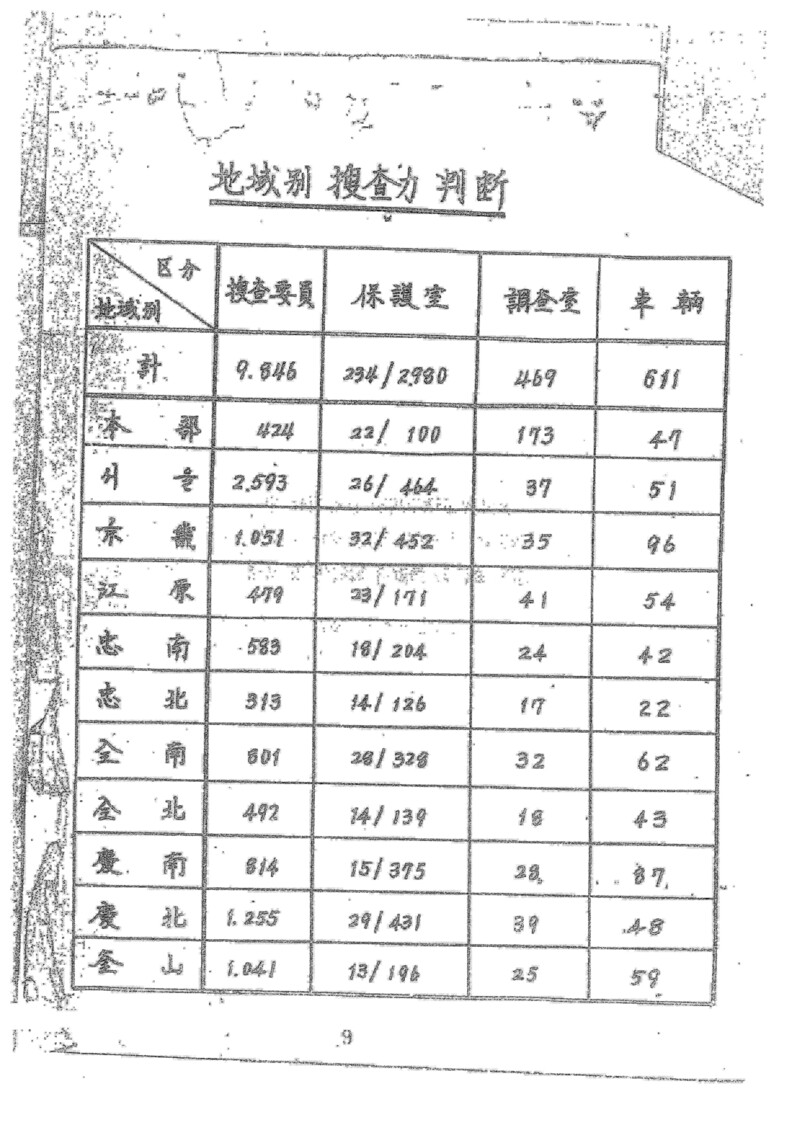 地域別 搜查力 判断
区分 搜查要員 保護室 調查室 車輛
地域別
計 9.846 234/2980 469 611
本部 424 22/ 100 173 47
서울 2.593 26/ 464 37 51
京畿 1.051 32/ 452 35 96
江原 479 23/171 41 54
忠南 583 18/ 204 24 42
忠北 313 14/126 17 22
全南 801 28/328 32 62
全北 492 14/139 18 43
慶南 814 15/375 28 87
慶北 1.255 29/431 39 48
釜山 1.041 13/196 25 59
9